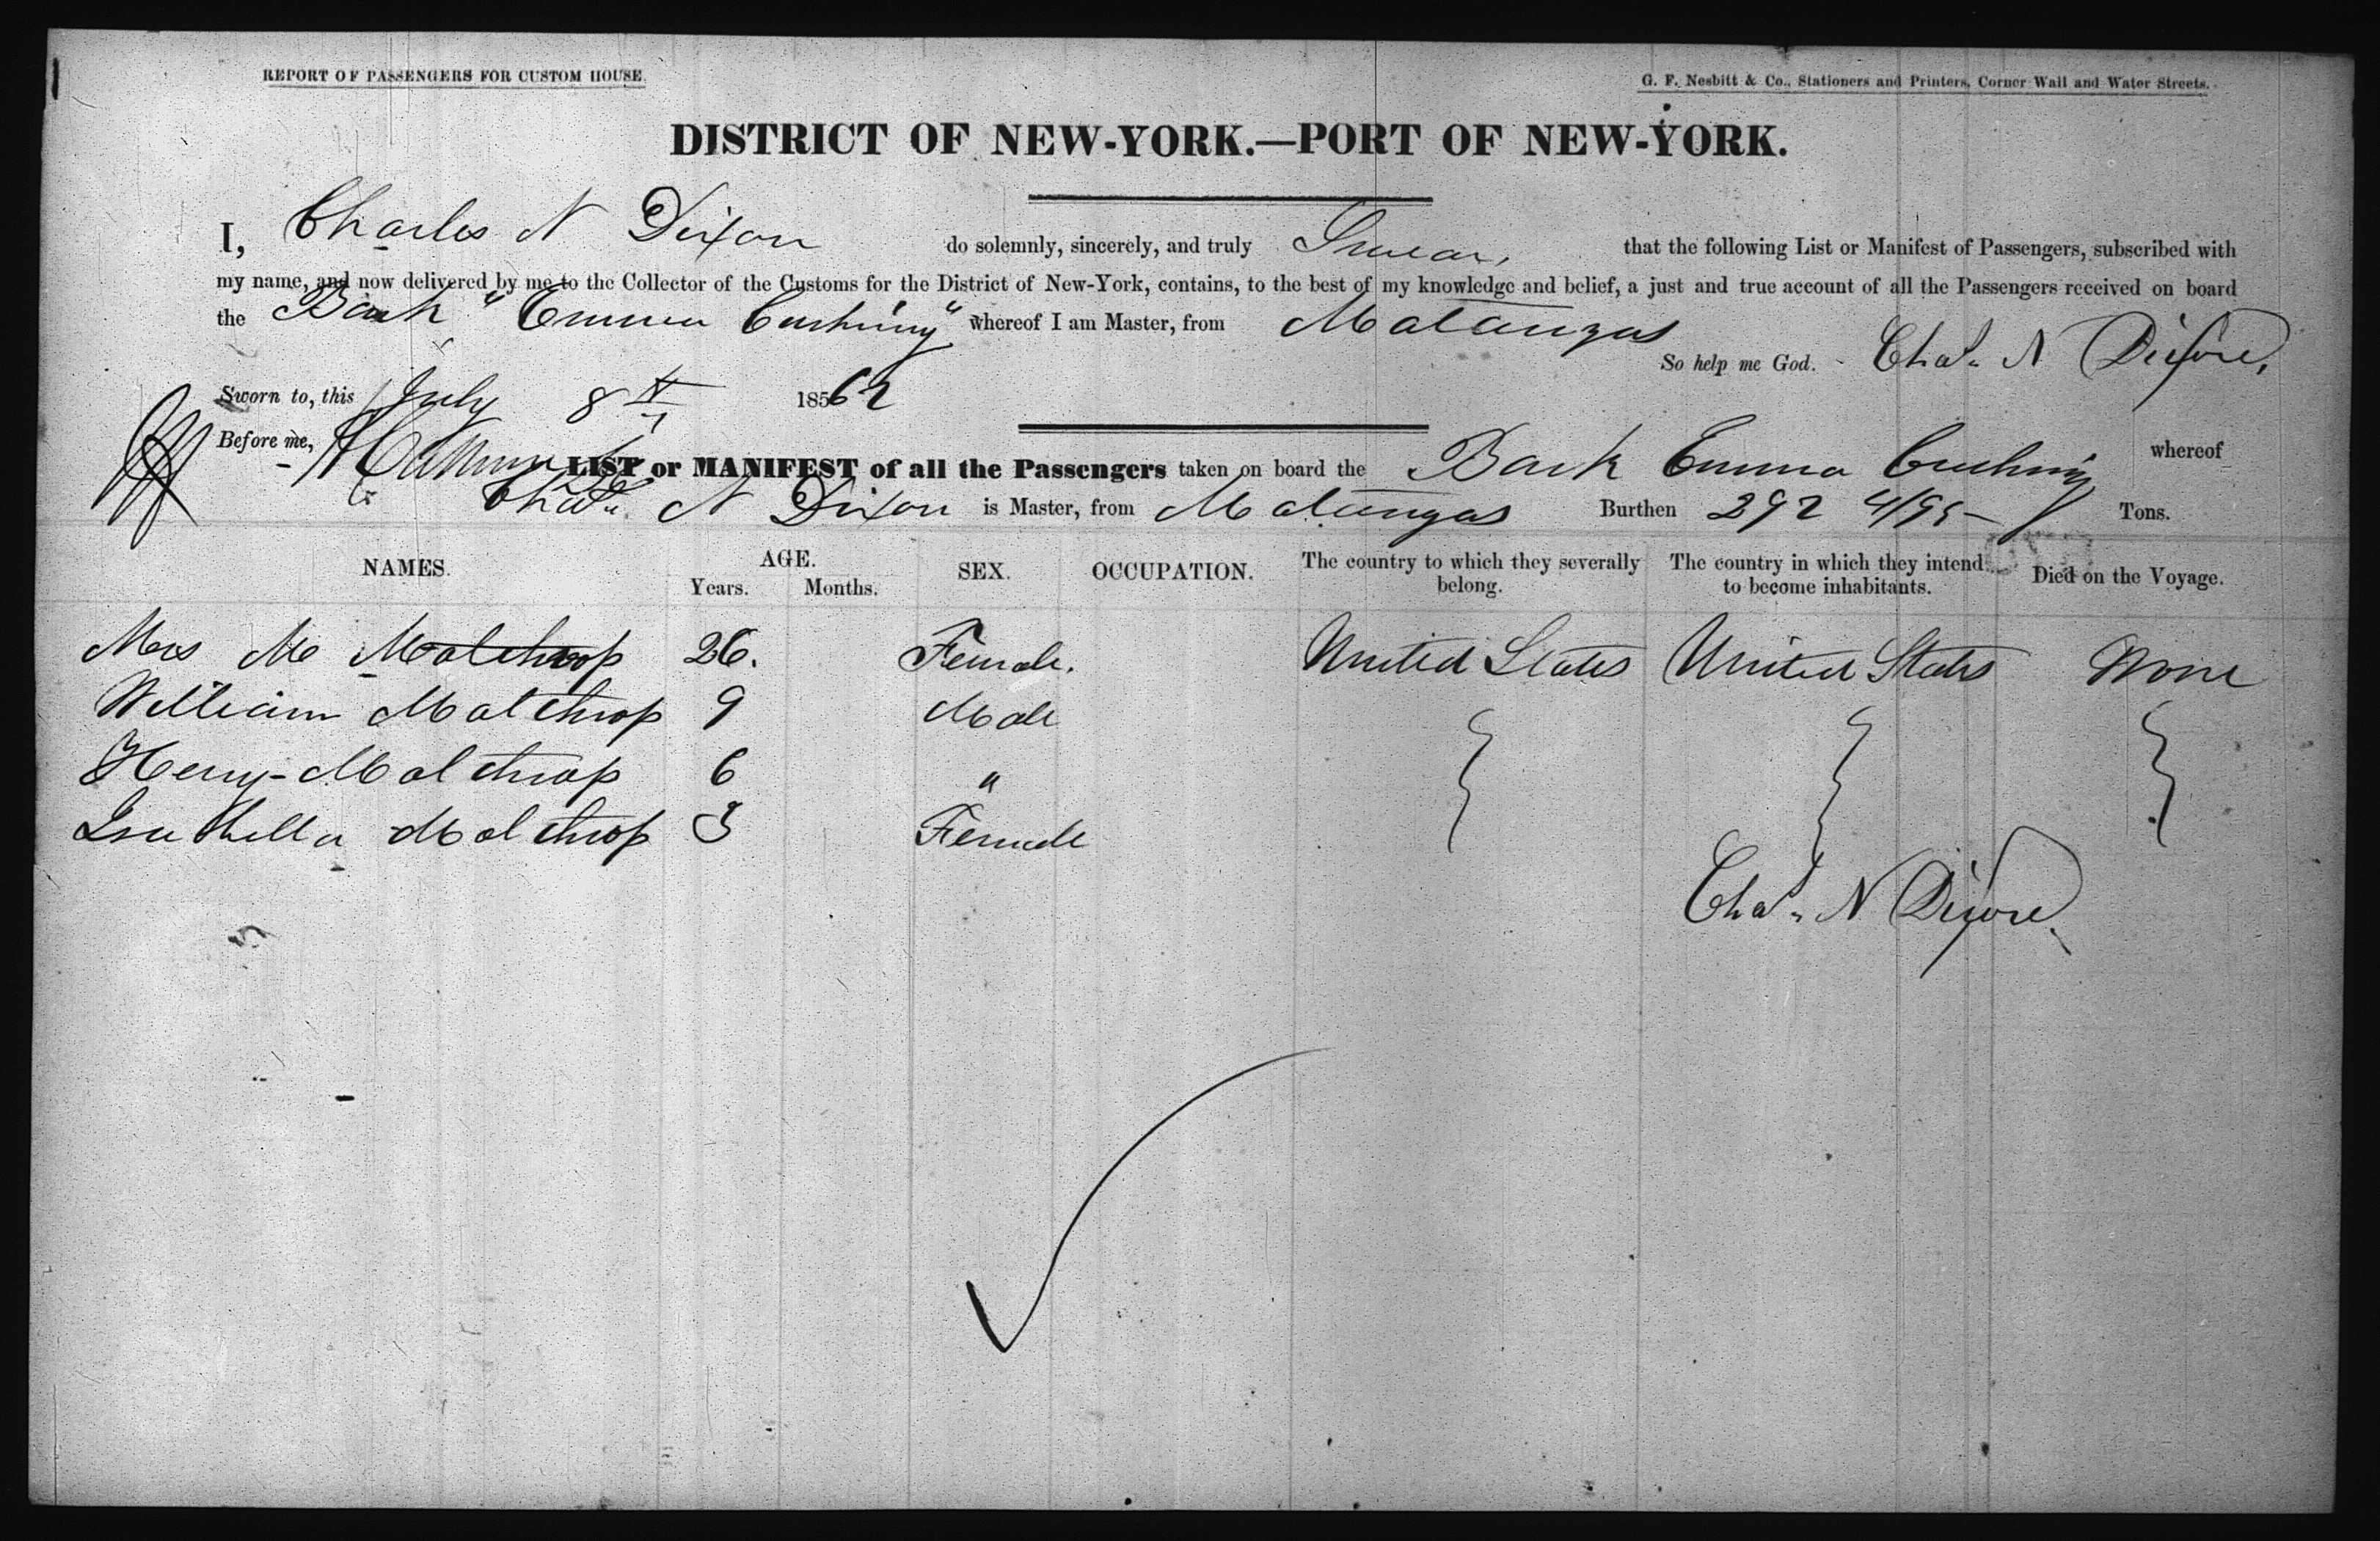 REPORT OF PASSENGERS FOR CUSTOM HOUSE.
G. F. Nesbitt & Co., Stationers and Printers, Corner Wall and Water Streets.
DISTRICT OF NEW-YORK.—PORT OF NEW-YORK.
I, Charles N Dixon do solemnly, sincerely, and truly Swear, that the following List or Manifest of Passengers, subscribed with
my name, and now delivered by me to the Collector of the Customs for the District of New-York, contains, to the best of my knowledge and belief, a just and true account of all the Passengers received on board
the Bark "Emma Cushing" whereof I am Master, from Matanzas
So help me God. Chas. N Dixon,
Sworn to, this July 8th 18562
Before me,
LIST or MANIFEST of all the Passengers taken on board the Bark Emma Cushing whereof
Chas. N Dixon is Master, from Matanzas Burthen 292 4/95 Tons.
NAMES. AGE. Years. Months. SEX. OCCUPATION. The country to which they severally belong. The country in which they intend to become inhabitants. Died on the Voyage.
Mrs M Malthrop 26. Female. United States United States None
William Malthrop 9 Male
Henry Malthrop 6 "
Isabella Malthrop 3 Female
Chas. N Dixon.